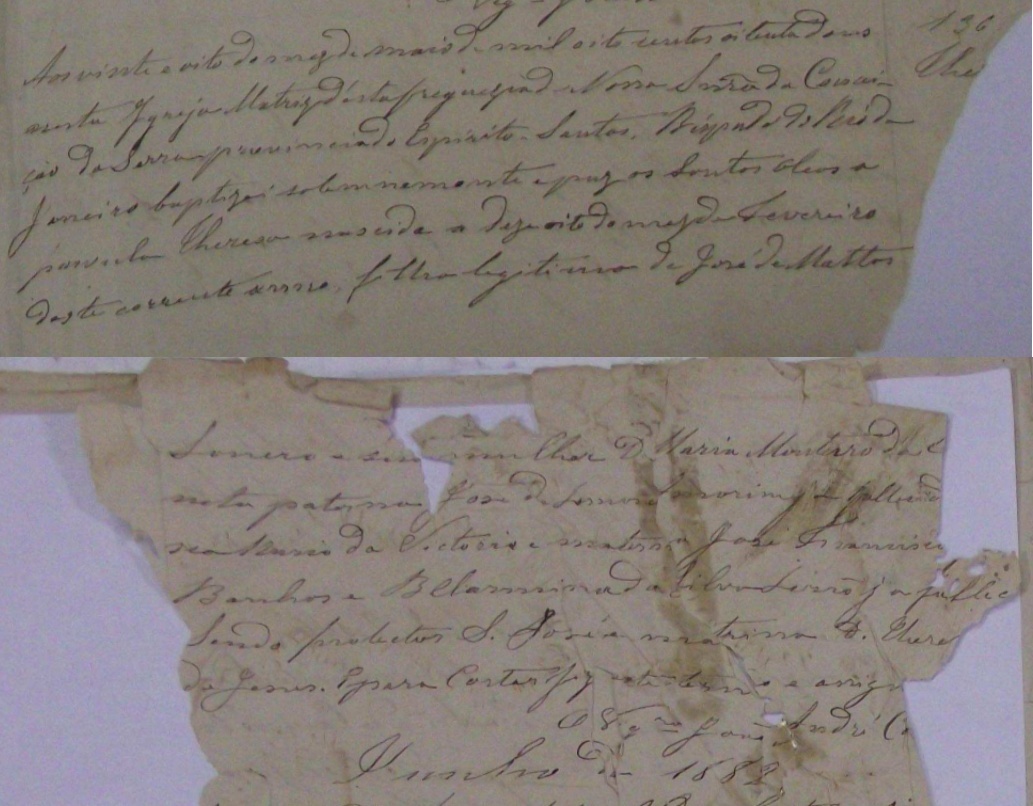 Aos vinte e oito do mez de maio de mil oito centos oitenta dous
136
nesta Igreja Matriz désta freguezia d Nossa Snrª da Concei-
The
ção da Serra provincia do Espirito-Santo, Bispado do Rio de
Janeiro baptizei solemnemente e puz os Santos Oleos a
parvula Thereza nascida a dezeoito do mez de Fevereiro
deste corrente anno, filha legitima de José de Mattos
e sua mulher D. Maria Monteiro da
neta paterna José de
Maria da Victoria e materna José Francisco
Banhos e Belarmina da Silva já
Sendo protector S. José e matrina D. There
de Jesus. E para Constar fiz este termo e assign
O Vigrº João André C
Junho de 1882